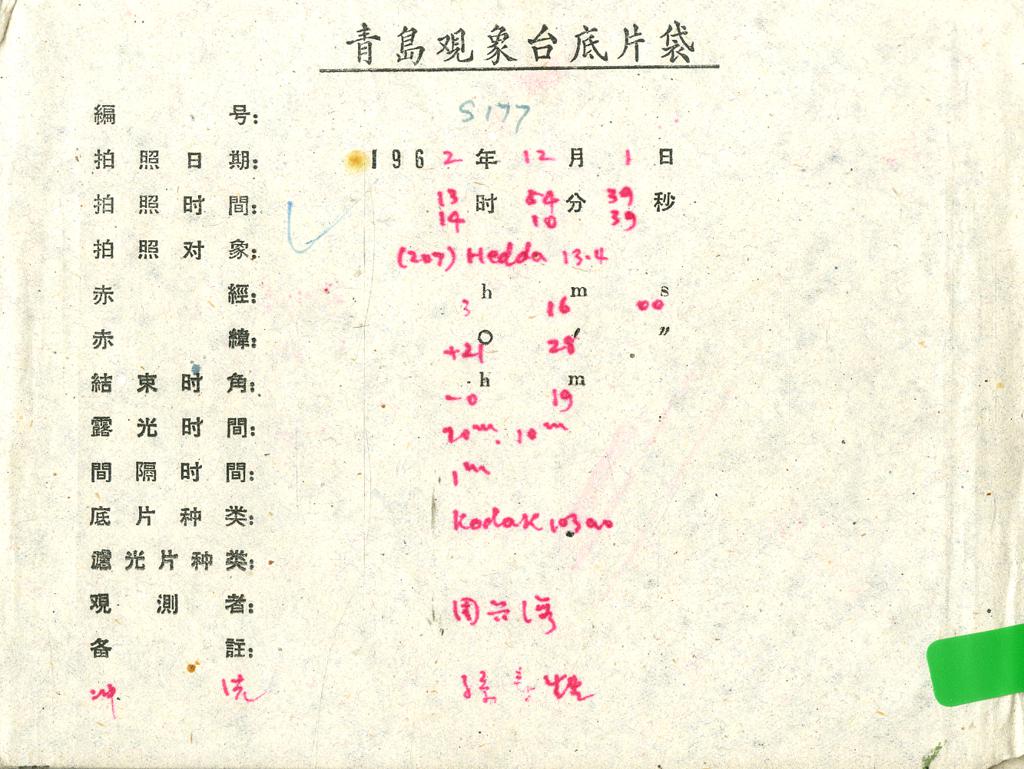 青島观象台底片袋
編号: S177
拍照日期: 1962年12月1日
拍照时間: 13时54分39秒
14 10 39
拍照对象: (207) Hedda 13.4
赤經: 3h 16m 00s
赤緯: +21° 28′ ″
結束时角: -0h 19m
露光时間: 20m. 10m
間隔时間: 1m
底片种类: Kodak 103a0
濾光片种类:
观測者: 周
备註:
冲洗